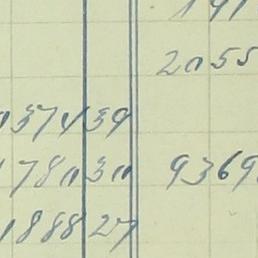 191
2055
037439
178030 9369
188827